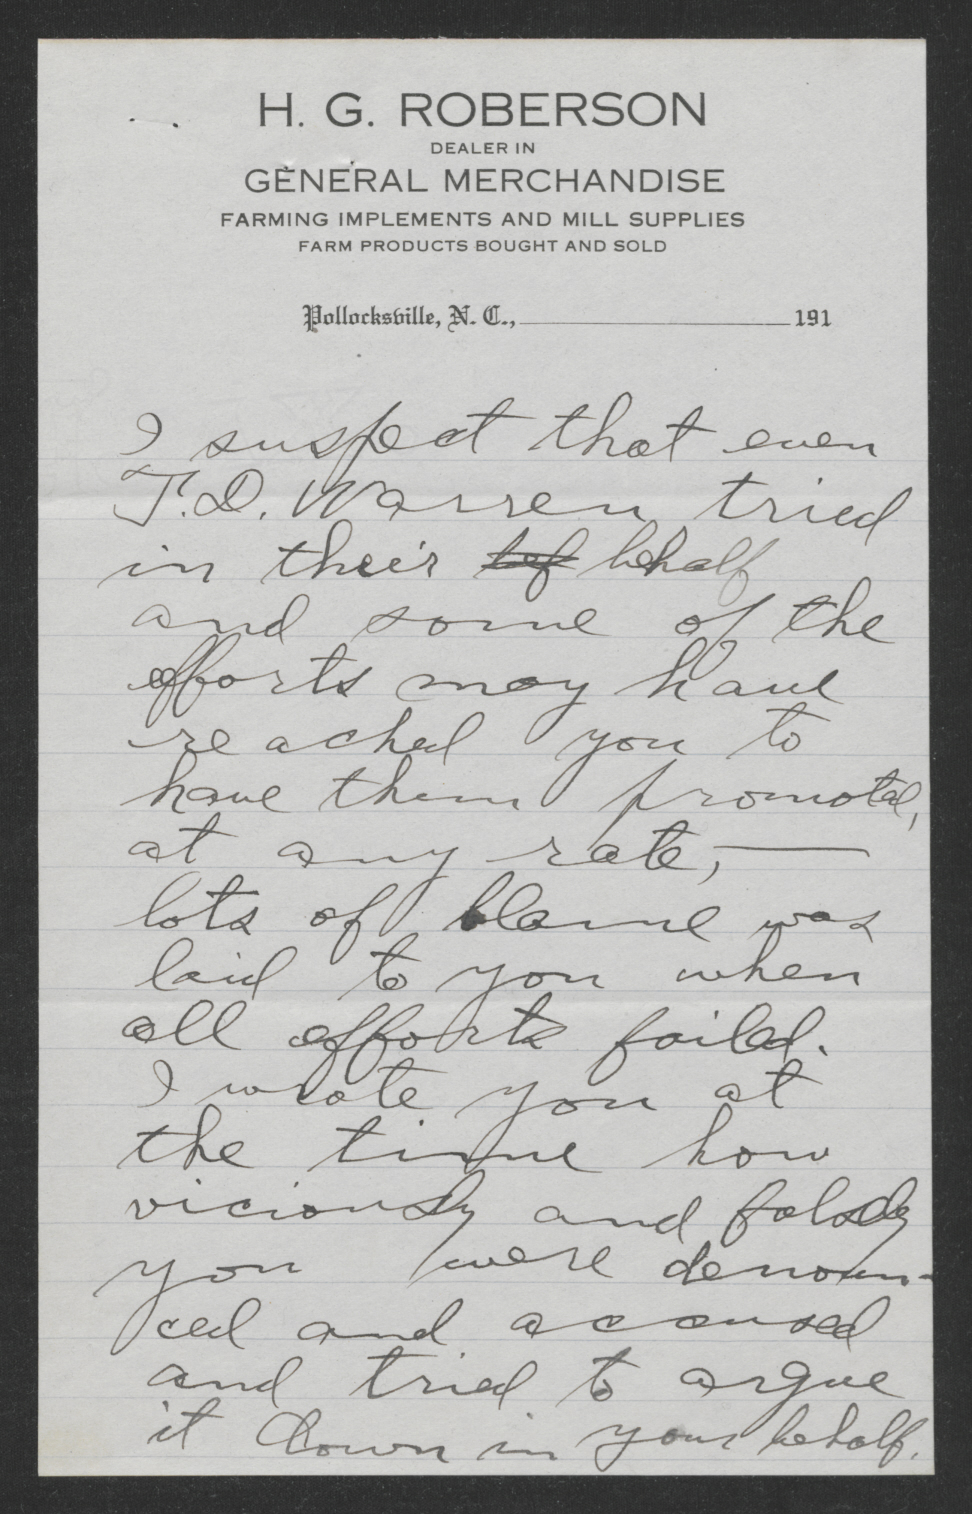 H. G. ROBERSON
DEALER IN
GENERAL MERCHANDISE
FARMING IMPLEMENTS AND MILL SUPPLIES
FARM PRODUCTS BOUGHT AND SOLD
Pollocksville, N. C., 191
I suspect that even
T.D. Warren tried
in their behalf
and some of the
efforts may have
reached you to
have them promoted,
at any rate, —
lots of blame was
laid to you when
all efforts failed.
I wrote you at
the time how
viciously and falsely
you were denoun-
ced and accused
and tried to argue
it down in your behalf.